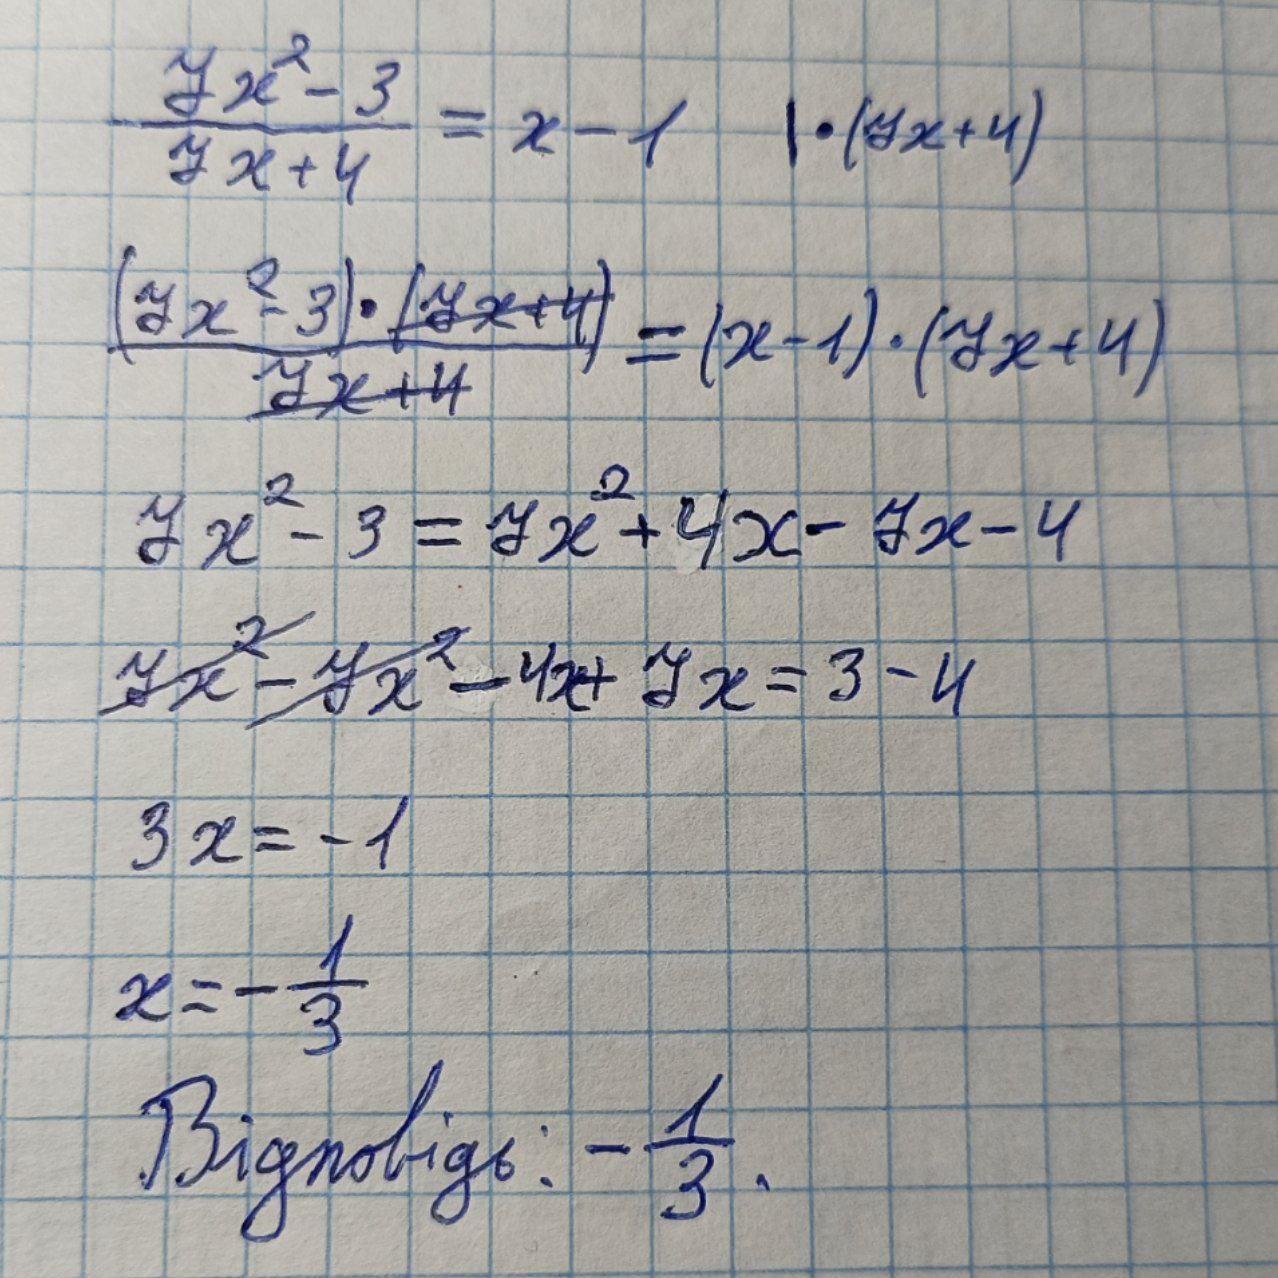 (7x² - 3)/(7x + 4) = x - 1 | · (7x + 4)
((7x² - 3) · (7x + 4))/(7x + 4) = (x - 1) · (7x + 4)
7x² - 3 = 7x² + 4x - 7x - 4
7x² - 7x² - 4x + 7x = 3 - 4
3x = -1
x = - 1/3
Відповідь: - 1/3.